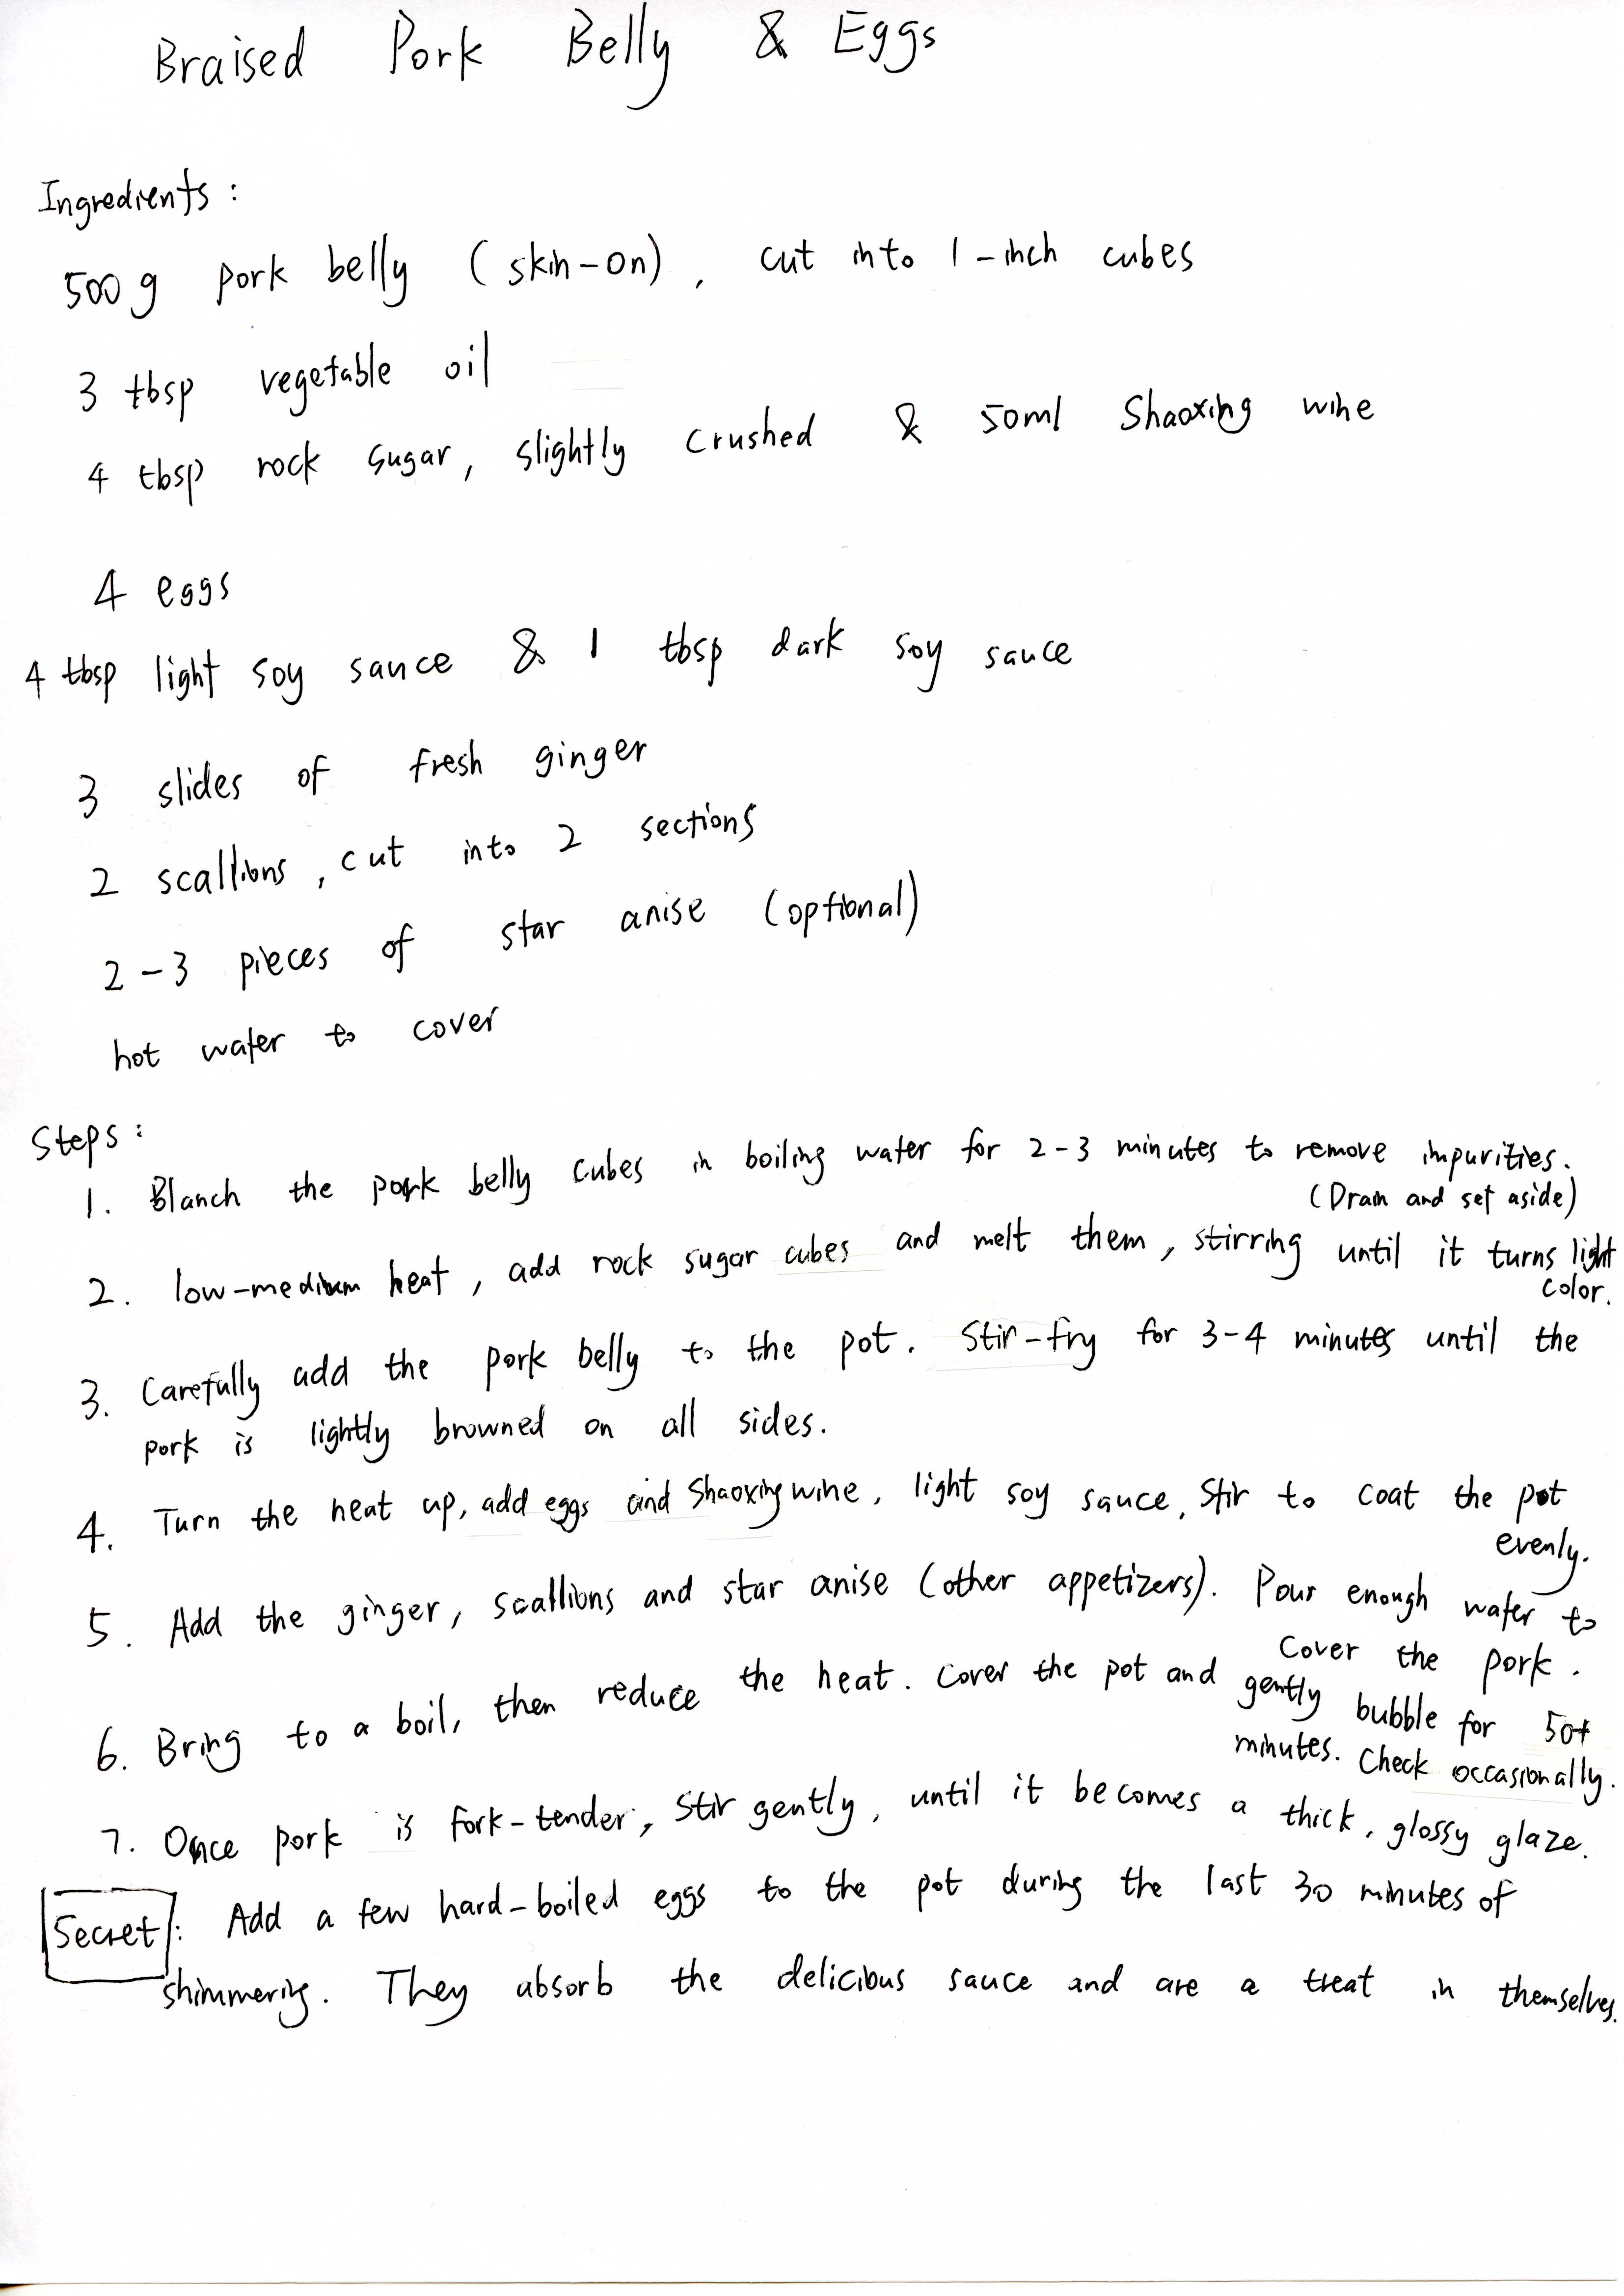 Braised Pork Belly & Eggs
Ingredients:
500g pork belly (skin-on), cut into 1-inch cubes
3 tbsp vegetable oil
4 tbsp rock sugar, slightly crushed & 50ml Shaoxing wine
4 eggs
4 tbsp light soy sauce & 1 tbsp dark soy sauce
3 slides of fresh ginger
2 scallions, cut into 2 sections
2-3 pieces of star anise (optional)
hot water to cover
Steps:
1. Blanch the pork belly cubes in boiling water for 2-3 minutes to remove impurities.
(Drain and set aside)
2. low-medium heat, add rock sugar cubes and melt them, stirring until it turns light
color.
3. Carefully add the pork belly to the pot. Stir-fry for 3-4 minutes until the
pork is lightly browned on all sides.
4. Turn the heat up, add eggs and Shaoxing wine, light soy sauce, Stir to coat the pot
evenly.
5. Add the ginger, scallions and star anise (other appetizers). Pour enough water to
cover the pork.
6. Bring to a boil, then reduce the heat. Cover the pot and gently bubble for 50+
minutes. Check occasionally.
7. Once pork is fork-tender, stir gently, until it becomes a thick, glossy glaze.
Secret: Add a few hard-boiled eggs to the pot during the last 30 minutes of
shimmering. They absorb the delicious sauce and are a treat in themselves.